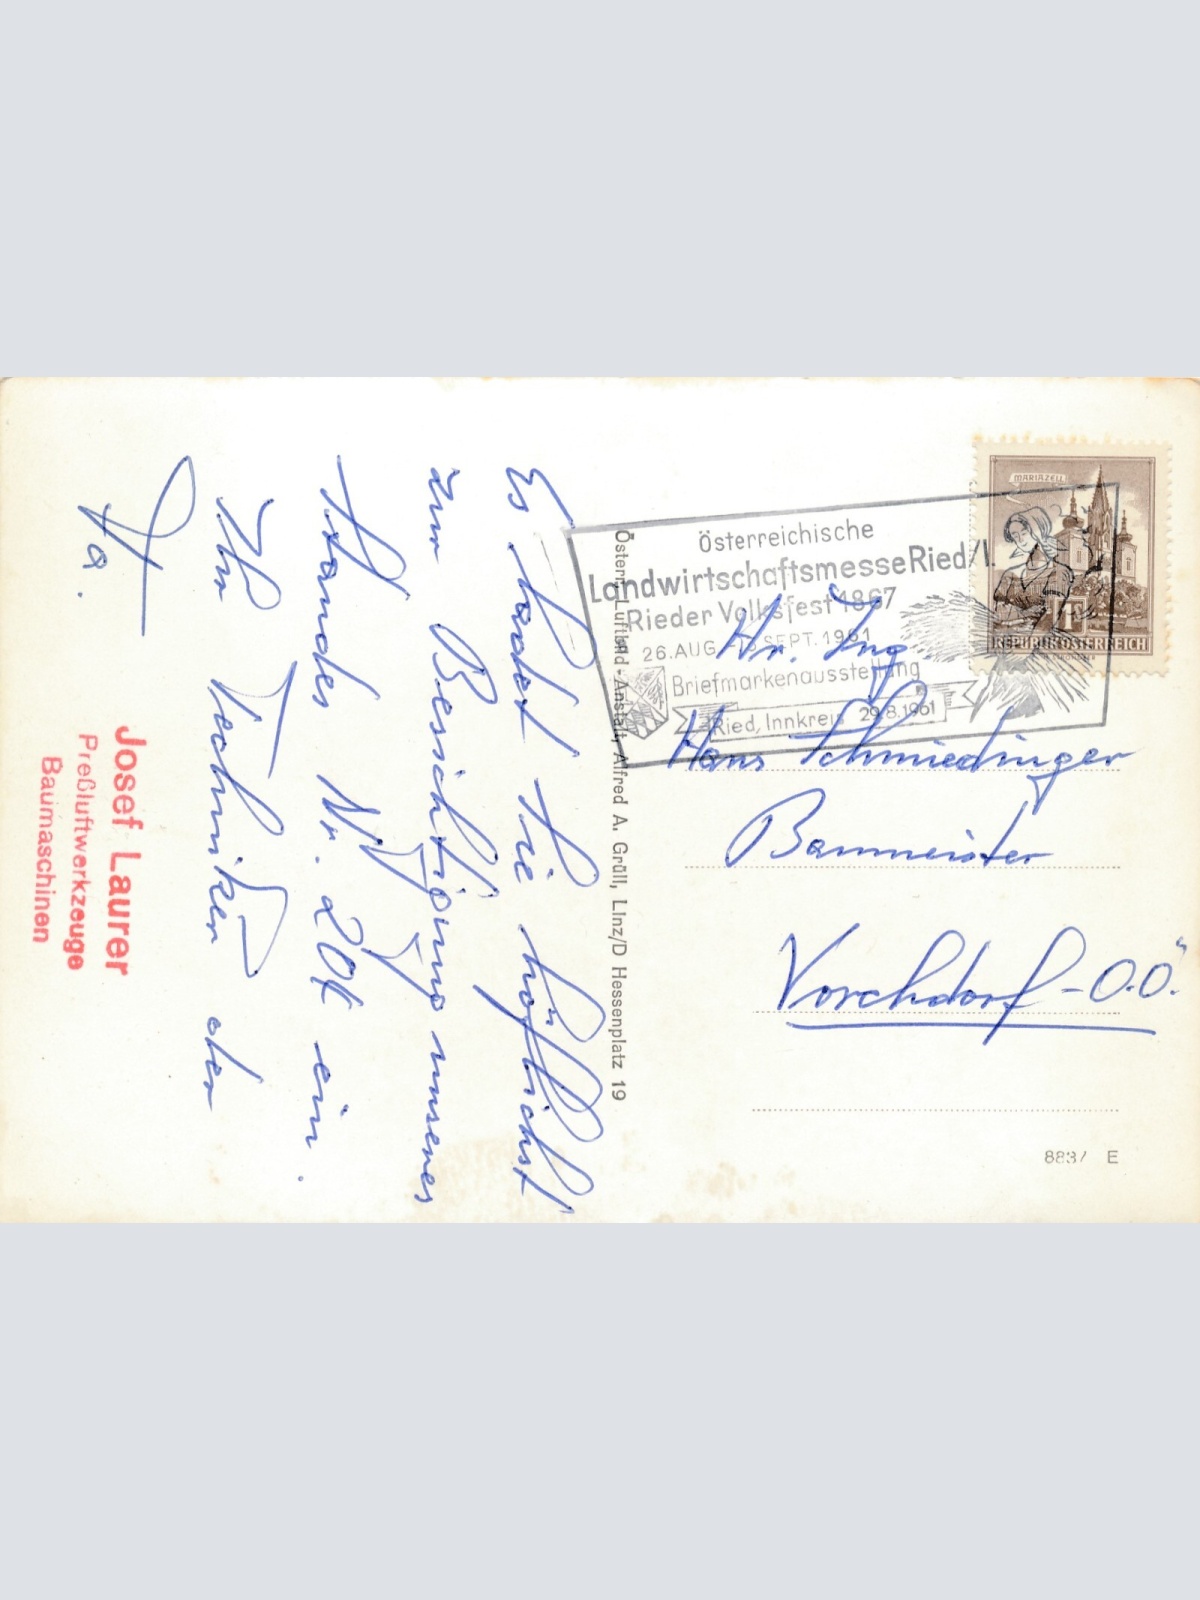 Es ladet Sie höflichst
zur Besichtigung unseres
Standes Nr. 204 ein.
Ihr Techniker der
Fa.
Josef Laurer
Preßluftwerkzeuge
Baumaschinen
Österr. Luftbild-Anstalt, Alfred A. Grüll, Linz/D Hessenplatz 19
Österreichische
Landwirtschaftsmesse Ried/I.
Rieder Volksfest 1867
26. AUG. - SEPT. 1961
Briefmarkenausstellung
Ried, Innkreis 29.8.1961
MARIAZELL
REPUBLIK ÖSTERREICH
Hr. Ing.
Hans Schmiedinger
Baumeister
Vorchdorf - O.Ö.
8837 E